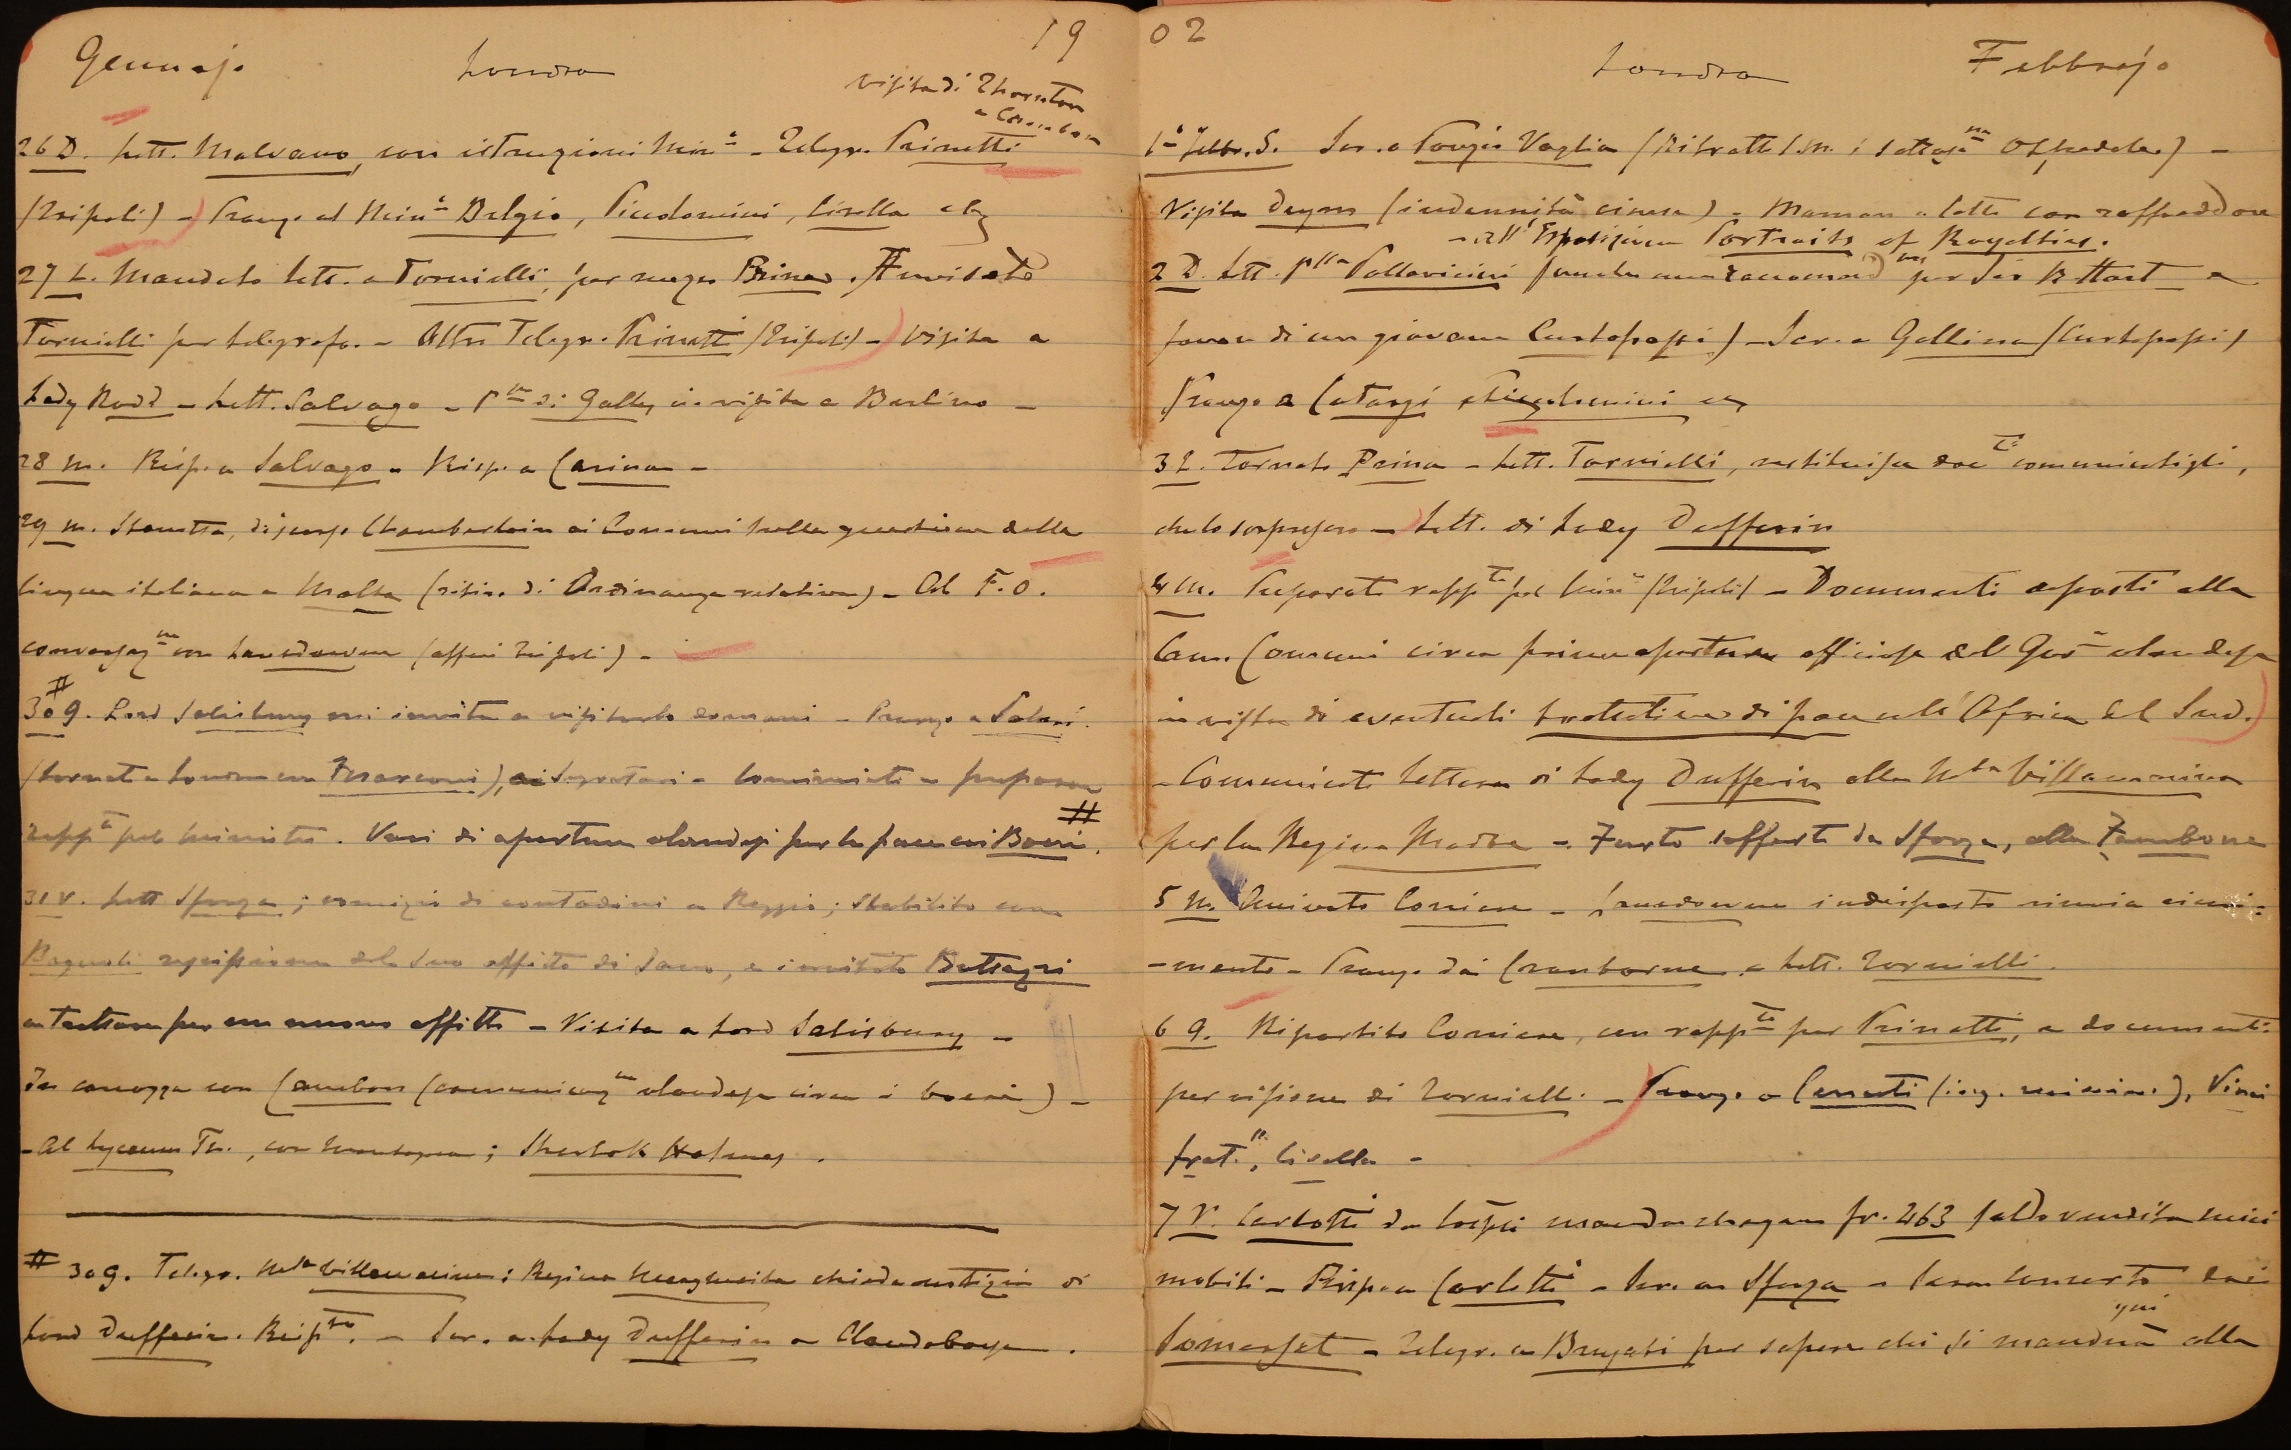 Gennajo Londra 19
visita di Thornton
26 D. Lett. Malvano, con istruzioni Min.ⁱ - Telegr. Prinetti
(Tripoli) - Pranzo al Min.º Belgio, Piccolomini, Lisella etc
27 L. Mandato lett. a Tornielli, per mezzo Prina. Avvisato
Tornielli per telegrafo. - Altro Telegr. Prinetti (Tripoli) - Visita a
Lady Rodd - Lett. Salvago - P.ssa di Galles in visita a Berlino -
28 M. Risp. a Salvago - Risp. a Carina -
29 M. Stanotte, discorso Chamberlain ai Comuni sulla questione della
lingua italiana a Malta (ritiro di Ordinanza relativa) - Al F.O.
conversaz.ne con Lansdowne (affari Tripoli) -
# 30 G. Lord Salisbury mi invita a visitarlo domani - Pranzo a Solari
(tornato a Londra con Marconi), ai Segretari - Cominciato a preparare
rapp.ti pel ministro. Voci di apertura olandesi per la pace coi Boeri. #
31 V. Lett. Sforza; comizio di contadini a Reggio; Stabilito con
Bagnoli rescissione del suo affitto di Sano, e invitato Bottazzi
a trattare per un nuovo affitto - Visita a Lord Salisbury -
In carrozza con Cambon (comunicaz.ne olandese circa i boeri) -
- Al Lyceum Th., con Montagna; Sherlok Holmes.
# 30 G. Telegr. M.sa Villamarina: Regina Margherita chiede notizie di
Lord Dufferin. Risp.to. - Scr. a Lady Dufferin a Clandeboye.
02 Londra Febbrajo
1º Febbr. S. Scr. a Poggio Vaglia (Ritratto S.M. i sottosz.ne Ospedale) -
Visita Deym (indennità cinese) - Maman a letto con raffreddore
- All' Esposizione Portraits of Royalties.
2 D. Lett. P.ssa Pallavicini (manda una raccomand.ne per Sir R. Hart a
favore di un giovane Curtopassi) - Scr. a Gallina (Curtopassi)
Pranzo a Catargi, Piccolomini etc
3 L. Tornato Prina - Lett. Tornielli, restituisce doc.ti comunicatigli,
che lo sorpresero - Lett. di Lady Dufferin
4 M. Preparati rapp.ti pel Min.º (Tripoli) - Documenti deposti alla
Cam. Comuni circa prime aperture officiose del Gov.º olandese
in vista di eventuali trattative di pace nell' Africa del Sud.
- Comunicato lettera di Lady Dufferin alla M.sa Villamarina
per la Regina Madre - Furto sofferto da Sforza, alla Zambone
5 M. Arrivato Corriere - Lansdowne indisposto rinvia ricevi=
-mento - Pranzo dai Cranborne - Lett. Tornielli.
6 G. Ripartito Corriere, con rapp.ti per Prinetti, e documenti
per visione di Tornielli. - Pranzo a Cerruti (ing. miniere), Vinci
frat.lli, Lisella -
7 V. Carlotti da Cospoli manda chèque fr. 463 saldo vendita miei
mobili - Risp. a Carlotti - Scr. a Sforza - Sera concerto dai
Somerset - Telegr. a Brugati per sapere chi si manderà qui alla